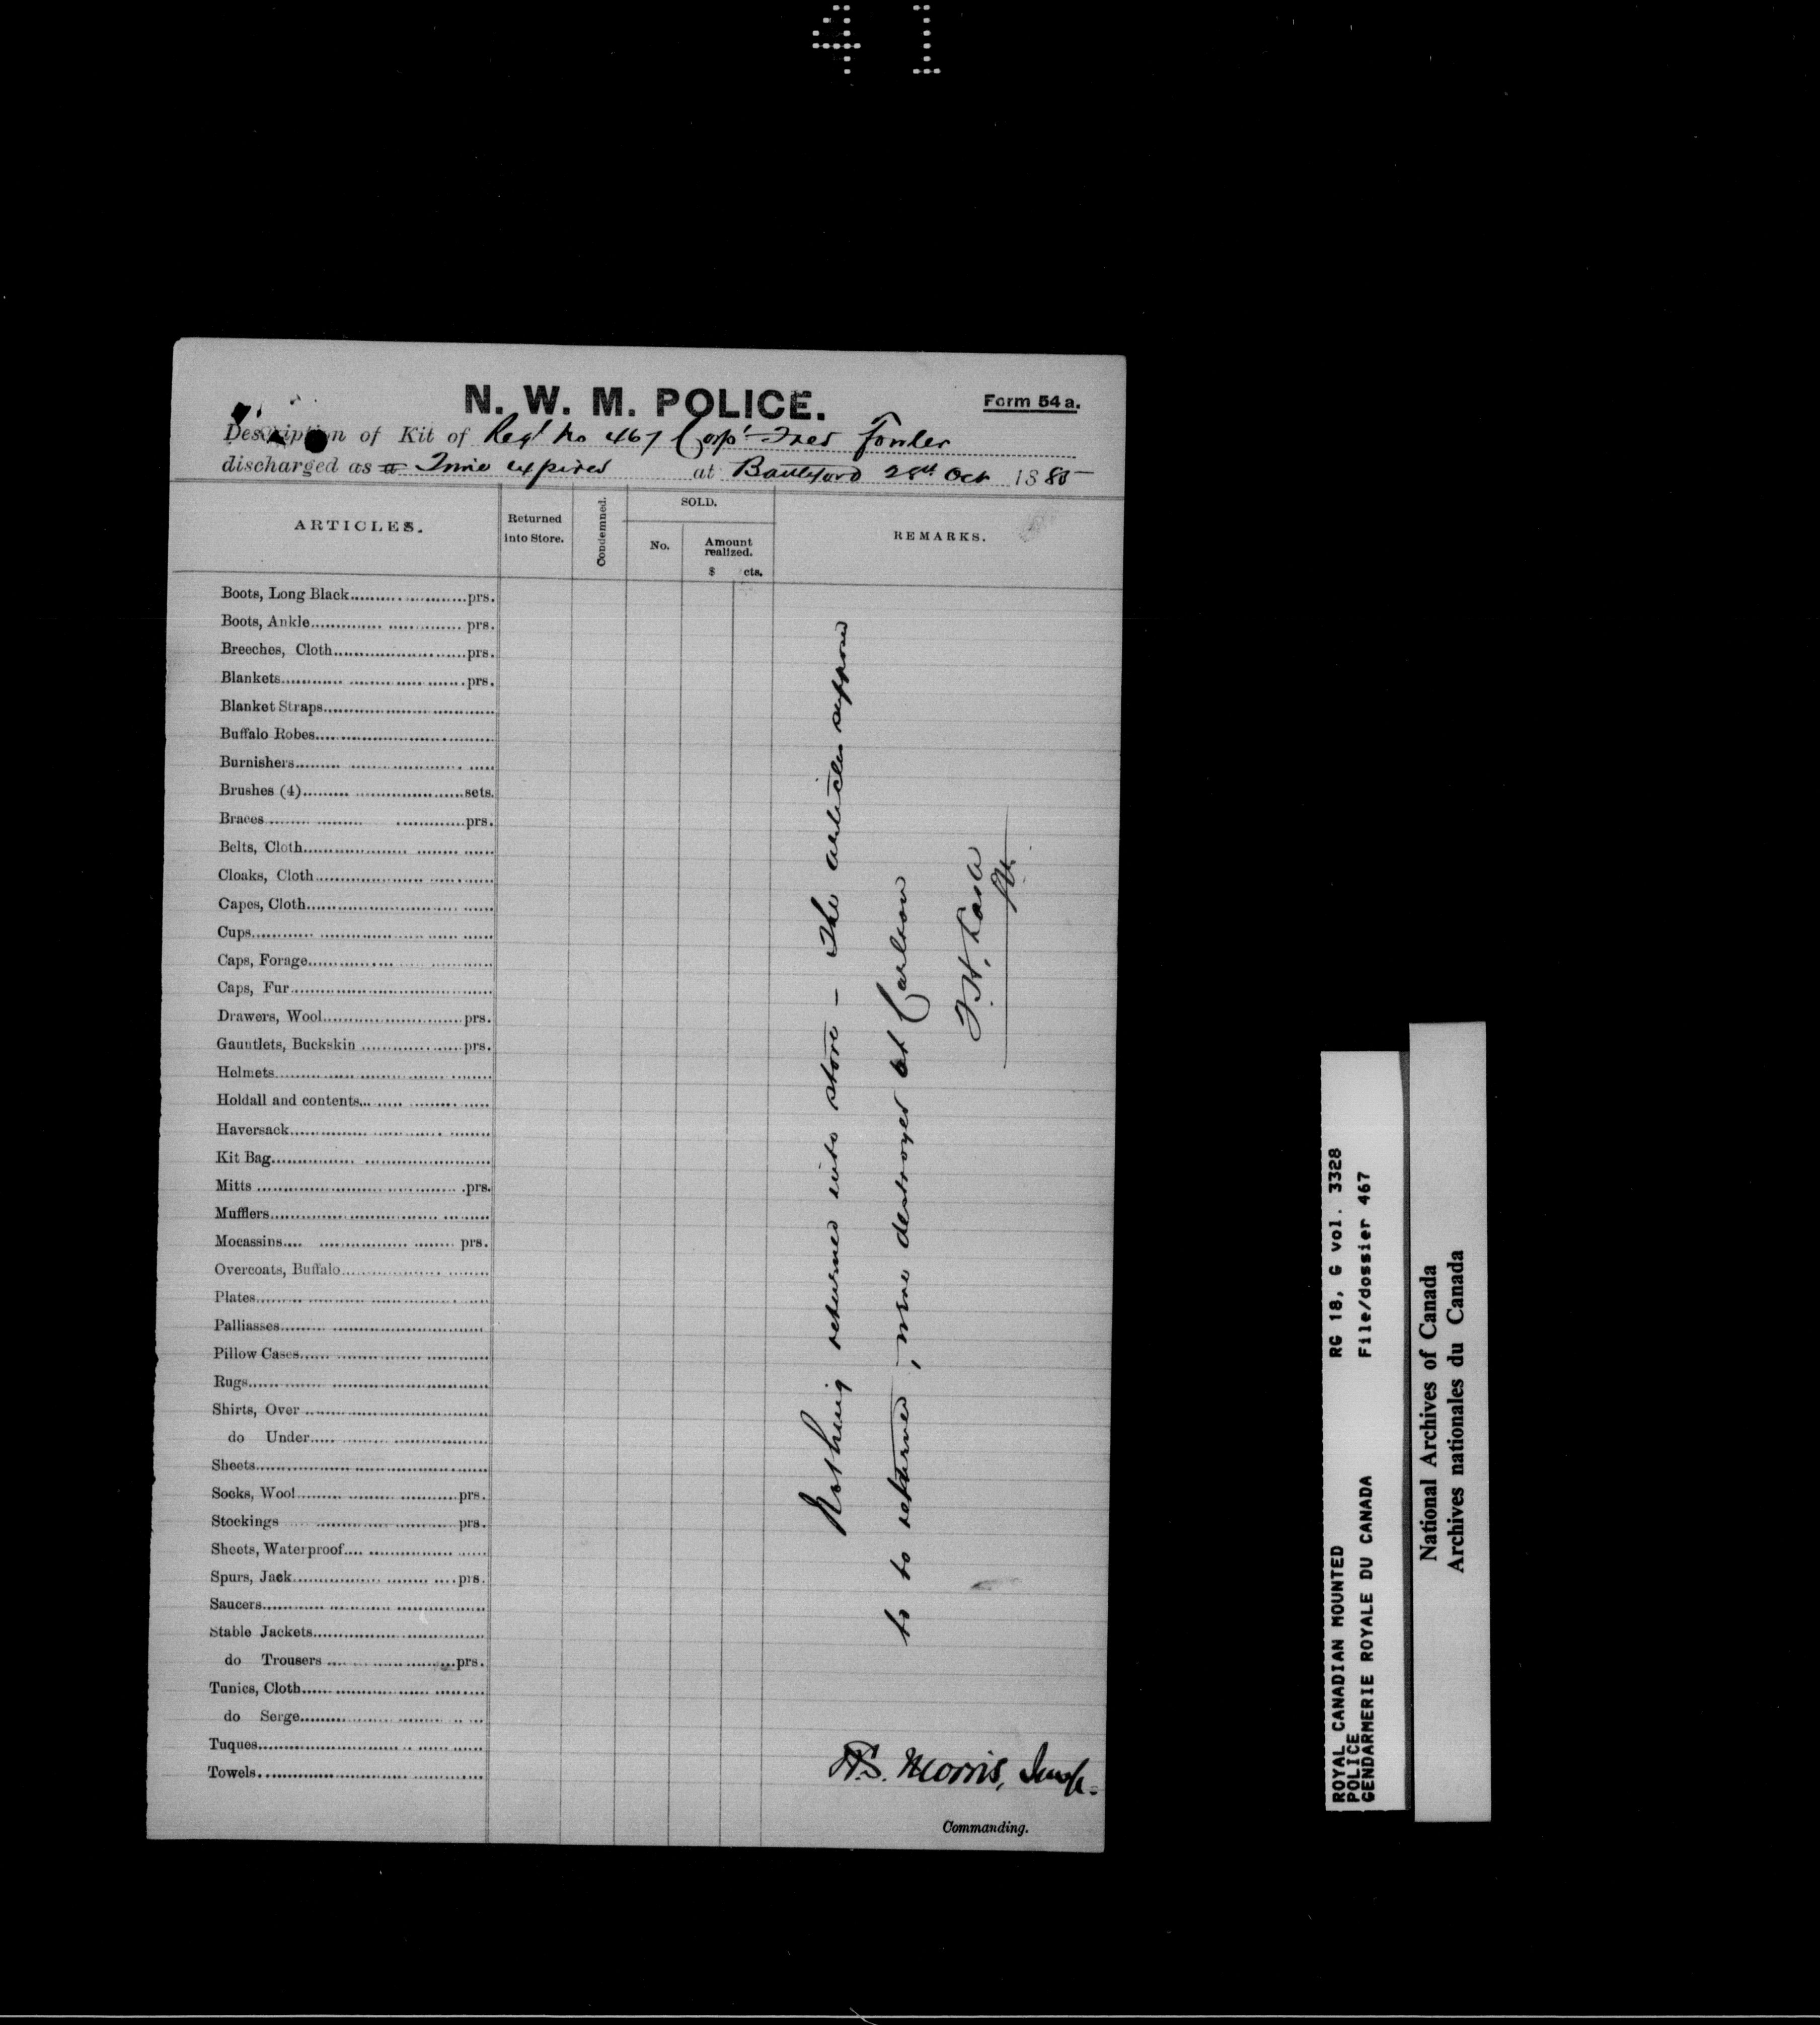 41
N. W. M. POLICE.
Form 54 a.
Description of Kit of Regt No 467 Corpl Fred Fowler
discharged as a Time expired at Battleford 28th Oct 1885
ARTICLES.
Returned into Store.
Condemned.
SOLD.
No.
Amount realized.
$ cts.
REMARKS.
Boots, Long Black prs.
Boots, Ankle prs.
Breeches, Cloth prs.
Blankets prs.
Blanket Straps
Buffalo Robes
Burnishers
Brushes (4) sets.
Braces prs.
Belts, Cloth
Cloaks, Cloth
Capes, Cloth
Cups
Caps, Forage
Caps, Fur
Drawers, Wool prs.
Gauntlets, Buckskin prs.
Helmets
Holdall and contents
Haversack
Kit Bag
Mitts prs.
Mufflers
Mocassins prs.
Overcoats, Buffalo
Plates
Palliasses
Pillow Cases
Rugs
Shirts, Over
do Under
Sheets
Socks, Wool prs.
Stockings prs.
Sheets, Waterproof
Spurs, Jack prs.
Saucers
Stable Jackets
do Trousers prs.
Tunics, Cloth
do Serge
Tuques
Towels
Nothing returned into store - The articles supposed
to to returned, were destroyed at Carlton
W.S. Morris, Insp.
Commanding.
ROYAL CANADIAN MOUNTED RG 18, G vol. 3328
POLICE
GENDARMERIE ROYALE DU CANADA File/dossier 467
National Archives of Canada
Archives nationales du Canada